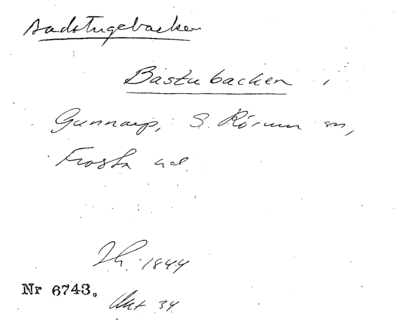 Badstugebacken
Bastubacken i
Gunnarp, S. Rörum sn,
Frosta hd.
Th. 1844
Nr 6743.
Akt 34